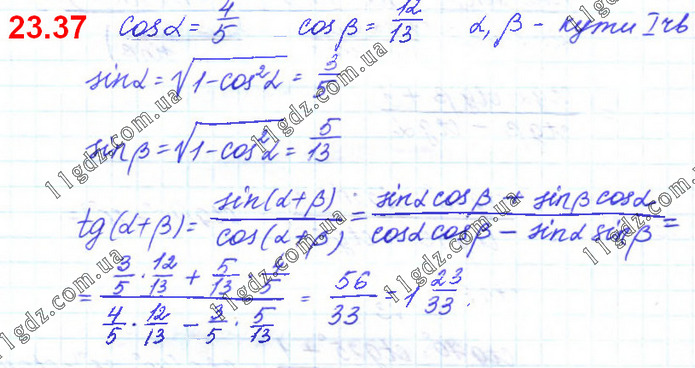 23.37 cosα = 4/5 cosβ = 12/13 α, β – кути I чв
sinα = √(1–cos²α) = 3/5
sinβ = √(1–cos²α) = 5/13
tg(α+β) = sin(α+β)/cos(α+β) = (sinα cosβ + sinβ cosα)/(cosα cosβ – sinα sinβ) =
= (3/5 · 12/13 + 5/13 · 4/5)/(4/5 · 12/13 – 3/5 · 5/13) = 56/33 = 1 23/33.
11gdz.com.ua
11gdz.com.ua
11gdz.com.ua
11gdz.com.ua
11gdz.com.ua
11gdz.com.ua